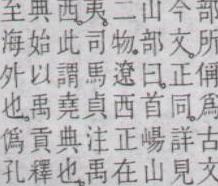 部所偁爲古文
今文。正同。詳見
山部曰。首崵山
二物。遼西正在
夷。司馬貞注禹
西。此謂堯典也。
典始以禹貢釋
至海外也。僞孔